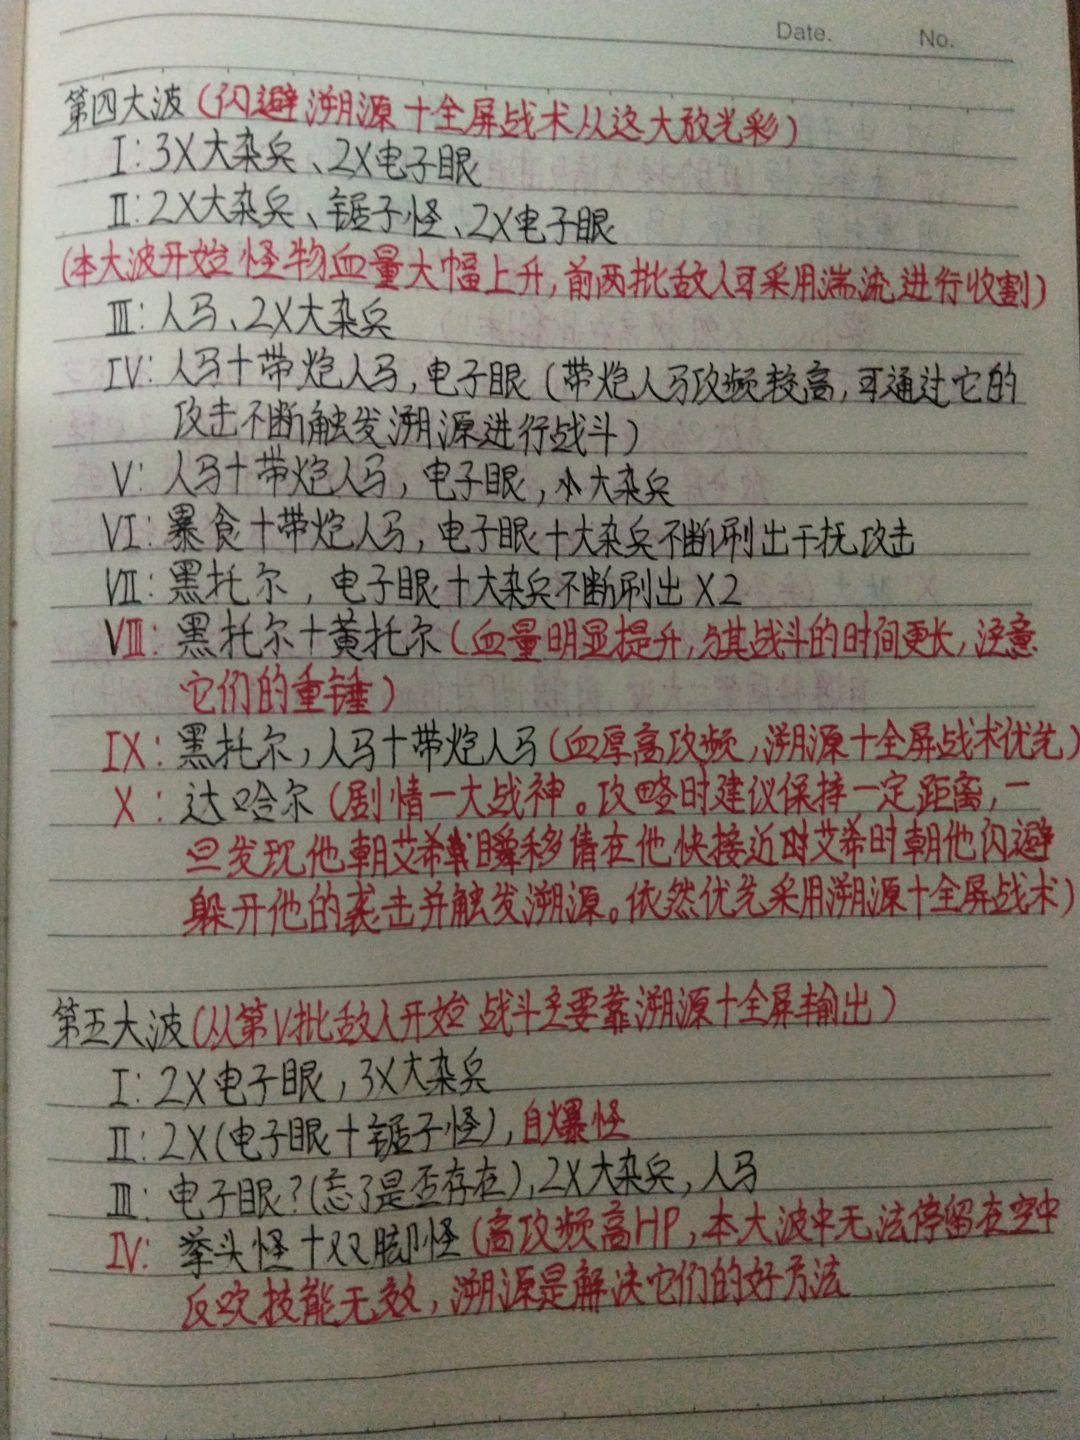 Date. No.
第四大波(闪避溯源+全屏战术从这大放光彩)
I:3X大杂兵、2X电子眼
II:2X大杂兵、锯子怪、2X电子眼
(本大波开始怪物血量大幅上升,前两批敌人可采用湍流进行收割)
III:人马、2X大杂兵
IV:人马+带炮人马,电子眼(带炮人马攻频较高,可通过它的
攻击不断触发溯源进行战斗)
V:人马+带炮人马,电子眼,小大杂兵
VI:暴食+带炮人马,电子眼+大杂兵不断刷出干扰攻击
VII:黑托尔,电子眼+大杂兵不断刷出X2
VIII:黑托尔+黄托尔(血量明显提升,与其战斗的时间更长,注意
它们的重锤)
IX:黑托尔,人马+带炮人马(血厚高攻频,溯源+全屏战术优先)
X:达哈尔(剧情一大战神。攻略时建议保持一定距离,一
旦发现他朝艾希瞬移倩在他快接近时艾希时朝他闪避
躲开他的袭击并触发溯源。依然优先采用溯源+全屏战术)
第五大波(从第V批敌人开始战斗主要靠溯源+全屏输出)
I:2X电子眼,3X大杂兵
II:2X(电子眼+锯子怪),自爆怪
III:电子眼?(忘了是否存在),2X大杂兵,人马
IV:拳头怪+双脚怪(高攻频高HP,本大波中无法停留在空中
反吹技能无效,溯源是解决它们的好方法